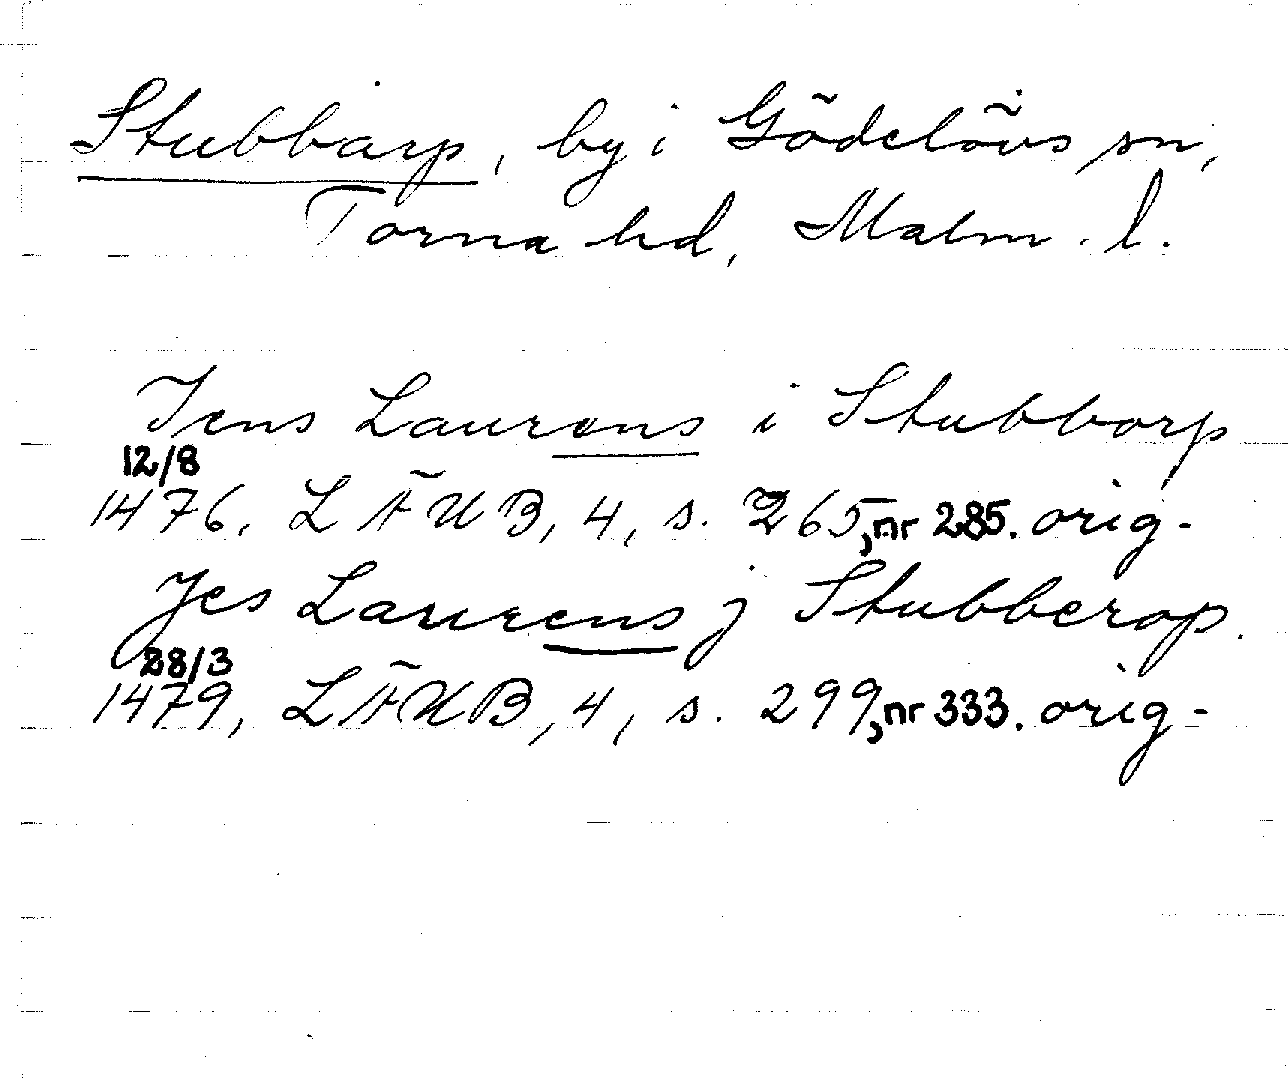 Stubbarp, by i Gödelövs sn,
Torna hd, Malm. l.
Jens Laurens i Stubborp
12/8
1476, LÄUB, 4, s. 265, nr 285. orig-
Jes Laurens j Stubberop.
28/3
1479, LÄUB, 4, s. 299, nr 333. orig-